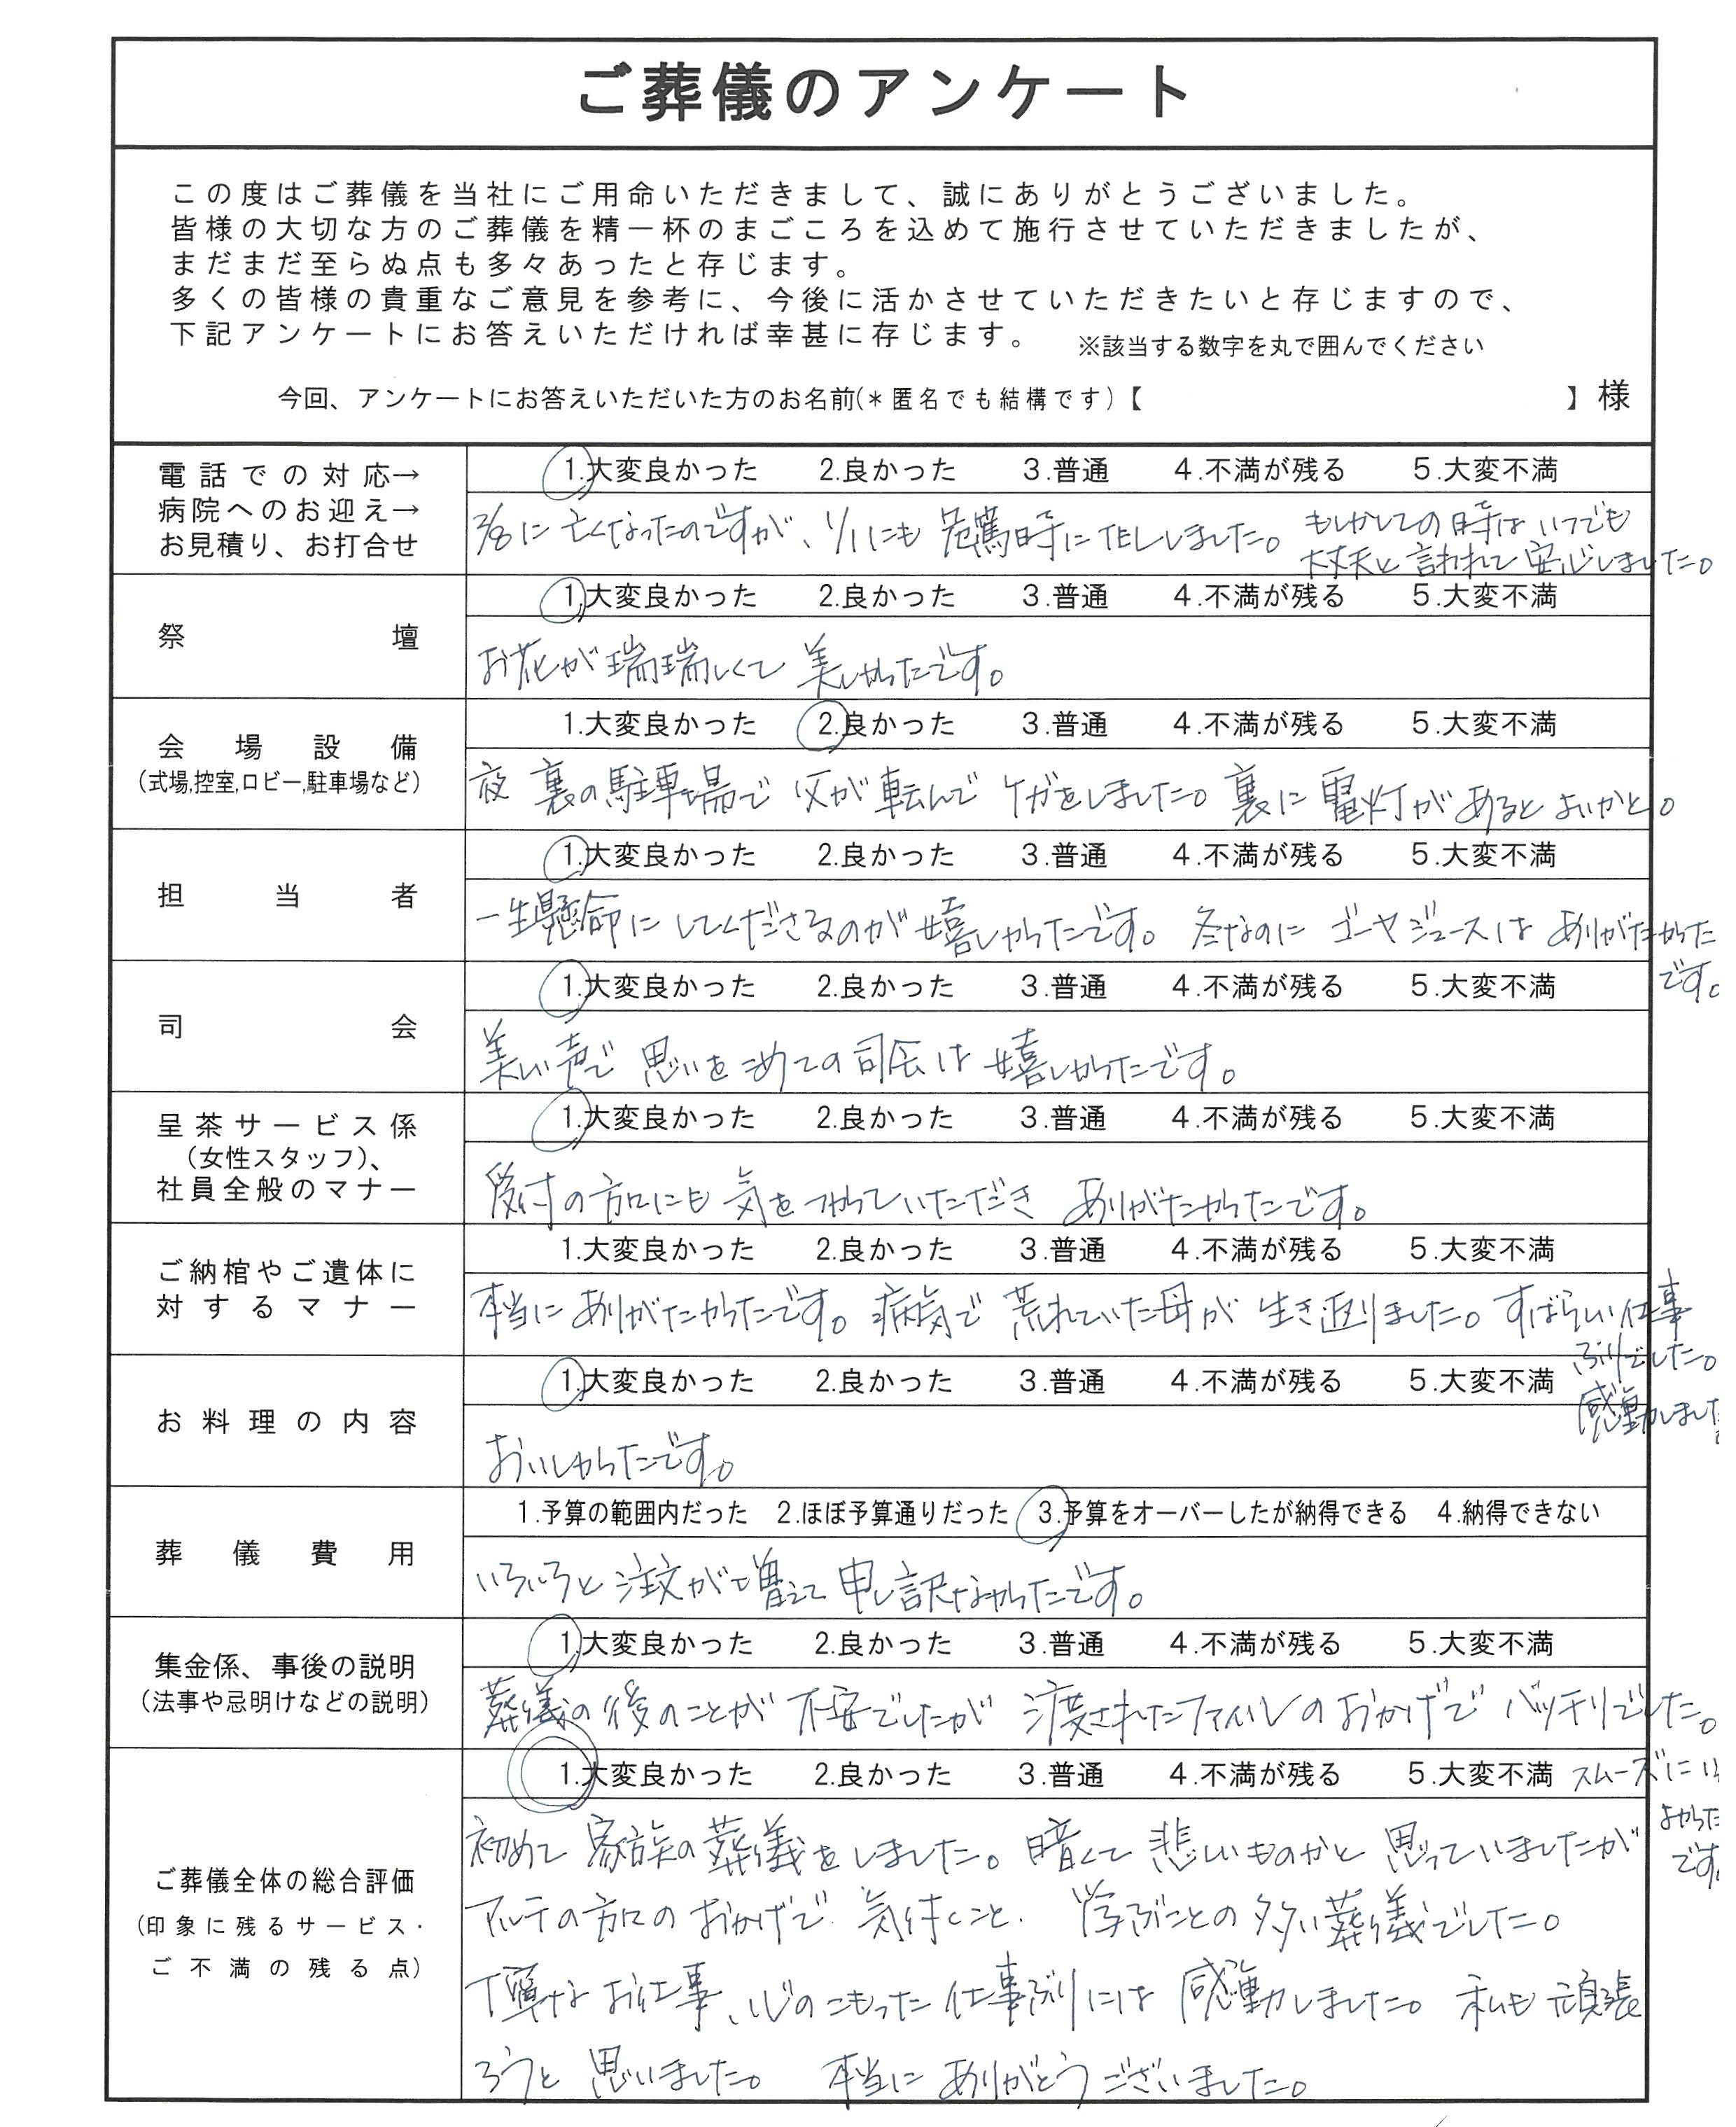 ご葬儀のアンケート
この度はご葬儀を当社にご用命いただきまして、誠にありがとうございました。
皆様の大切な方のご葬儀を精一杯のまごころを込めて施行させていただきましたが、
まだまだ至らぬ点も多々あったと存じます。
多くの皆様の貴重なご意見を参考に、今後に活かさせていただきたいと存じますので、
下記アンケートにお答えいただければ幸甚に存じます。 ※該当する数字を丸で囲んでください
今回、アンケートにお答えいただいた方のお名前(*匿名でも結構です)【 】様
電話での対応→
病院へのお迎え→
お見積り、お打合せ
1.大変良かった 2.良かった 3.普通 4.不満が残る 5.大変不満
に亡くなったのですが、1/1にも危篤時に しました。もしかしての時はいつでも
大丈夫と言われて安心しました。
祭壇
1.大変良かった 2.良かった 3.普通 4.不満が残る 5.大変不満
お花が瑞瑞しくて美しかったです。
会場設備
(式場,控室,ロビー,駐車場など)
1.大変良かった 2.良かった 3.普通 4.不満が残る 5.大変不満
夜 裏の駐車場で父が転んでケガをしました。裏に電灯があるとよいかと。
担当者
1.大変良かった 2.良かった 3.普通 4.不満が残る 5.大変不満
一生懸命にしてくださるのが嬉しかったです。冬なのにゴーヤジュースはありがたかった
です。
司会
1.大変良かった 2.良かった 3.普通 4.不満が残る 5.大変不満
美しい声で思いをこめての司会は嬉しかったです。
呈茶サービス係
(女性スタッフ)、
社員全般のマナー
1.大変良かった 2.良かった 3.普通 4.不満が残る 5.大変不満
受付の方々にも気をつかっていただきありがたかったです。
ご納棺やご遺体に
対するマナー
1.大変良かった 2.良かった 3.普通 4.不満が残る 5.大変不満
本当にありがたかったです。病気で荒れていた母が生き返りました。すばらしい仕事
ぶりでした。
感動しました
お料理の内容
1.大変良かった 2.良かった 3.普通 4.不満が残る 5.大変不満
おいしかったです。
葬儀費用
1.予算の範囲内だった 2.ほぼ予算通りだった 3.予算をオーバーしたが納得できる 4.納得できない
いろいろと注文が増えて申し訳なかったです。
集金係、事後の説明
(法事や忌明けなどの説明)
1.大変良かった 2.良かった 3.普通 4.不満が残る 5.大変不満
葬儀の後のことが不安でしたが渡されたファイルのおかげでバッチリでした。
スムーズに
よかった
です。
ご葬儀全体の総合評価
(印象に残るサービス・
ご不満の残る点)
1.大変良かった 2.良かった 3.普通 4.不満が残る 5.大変不満
初めて家族の葬儀をしました。暗くて悲しいものかと思っていましたが
アルテの方々のおかげで、気付くこと、学ぶことの多い葬儀でした。
丁寧なお仕事、心のこもった仕事ぶりには感動しました。私も頑張
ろうと思いました。本当にありがとうございました。